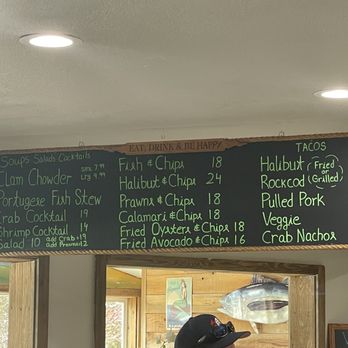 EAT, DRINK & BE HAPPY
Soups Salads Cocktails
Clam Chowder sm 7.99
Lrg 9.99
Portuguese Fish Stew
Crab Cocktail 19
Shrimp Cocktail 14
Salad 10 add Crab +19
Fish & Chips 18
Halibut & Chips 24
Prawns & Chips 18
Calamari & Chips 18
Fried Oysters & Chips 18
Fried Avocado & Chips 16
TACOS
Halibut (Fried
or
Rockcod Grilled)
Pulled Pork
Veggie
Crab Nachos